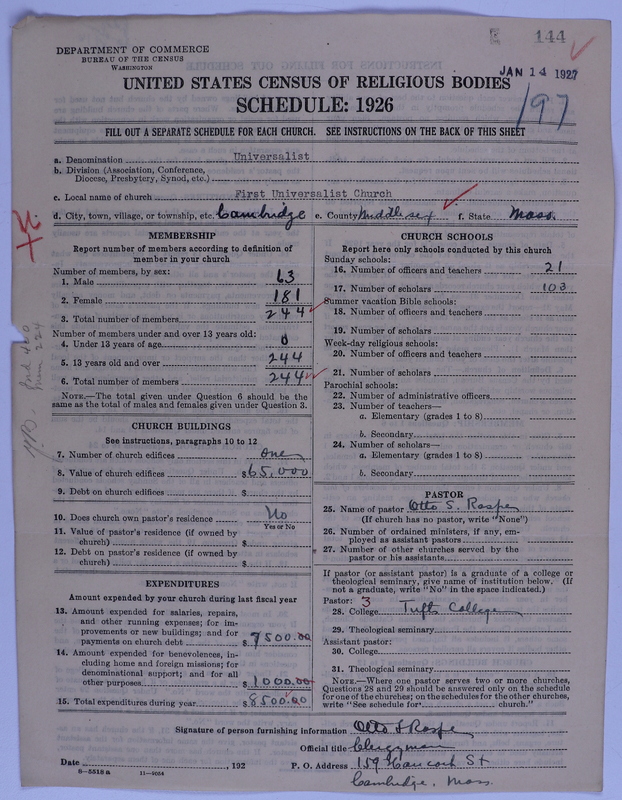 DEPARTMENT OF COMMERCE
BUREAU OF THE CENSUS
WASHINGTON
144
JAN 14 1927
UNITED STATES CENSUS OF RELIGIOUS BODIES
SCHEDULE: 1926
197
FILL OUT A SEPARATE SCHEDULE FOR EACH CHURCH. SEE INSTRUCTIONS ON THE BACK OF THIS SHEET
a. Denomination Universalist
b. Division (Association, Conference,
Diocese, Presbytery, Synod, etc.)
c. Local name of church First Universalist Church
d. City, town, village, or township, etc. Cambridge e. County Middlesex f. State Mass.
MEMBERSHIP
Report number of members according to definition of
member in your church
Number of members, by sex:
1. Male 63
2. Female 181
3. Total number of members 244
Number of members under and over 13 years old:
4. Under 13 years of age 0
5. 13 years old and over 244
6. Total number of members 244
NOTE.—The total given under Question 6 should be
same as the total of males and females given under Question 3.
CHURCH BUILDINGS
See instructions, paragraphs 10 to 12
7. Number of church edifices One
8. Value of church edifices $65,000
9. Debt on church edifices $
10. Does church own pastor's residence No
Yes or No
11. Value of pastor's residence (if owned by
church) $
12. Debt on pastor's residence (if owned by
church) $
EXPENDITURES
Amount expended by your church during last fiscal year
13. Amount expended for salaries, repairs,
and other running expenses; for im-
provements or new buildings; and for
payments on church debt $7500.00
14. Amount expended for benevolences, in-
cluding home and foreign missions; for
denominational support; and for all
other purposes $1000.00
15. Total expenditures during year $8500.00
CHURCH SCHOOLS
Report here only schools conducted by this church
Sunday schools:
16. Number of officers and teachers 21
17. Number of scholars 103
Summer vacation Bible schools:
18. Number of officers and teachers
19. Number of scholars
Week-day religious schools:
20. Number of officers and teachers
21. Number of scholars
Parochial schools:
22. Number of administrative officers
23. Number of teachers—
a. Elementary (grades 1 to 8)
b. Secondary
24. Number of scholars—
a. Elementary (grades 1 to 8)
b. Secondary
PASTOR
25. Name of pastor Otto S. Raspe
(If church has no pastor, write "None")
26. Number of ordained ministers, if any, em-
ployed as assistant pastors
27. Number of other churches served by the
pastor or his assistants
If pastor (or assistant pastor) is a graduate of a college or
theological seminary, give name of institution below. (If
not a graduate, write "No" in the space indicated.)
Pastor: 3
28. College Tufts College
29. Theological seminary
Assistant pastor:
30. College
31. Theological seminary
NOTE.—Where one pastor serves two or more churches,
Questions 28 and 29 should be answered only on the schedule
for one of the churches; on the schedules for the other churches,
write "See schedule for church."
Signature of person furnishing information Otto S Raspe
Official title Clergyman
Date , 192 P. O. Address 159 Hancock St
8—5518 a 11—9054 Cambridge, Mass.